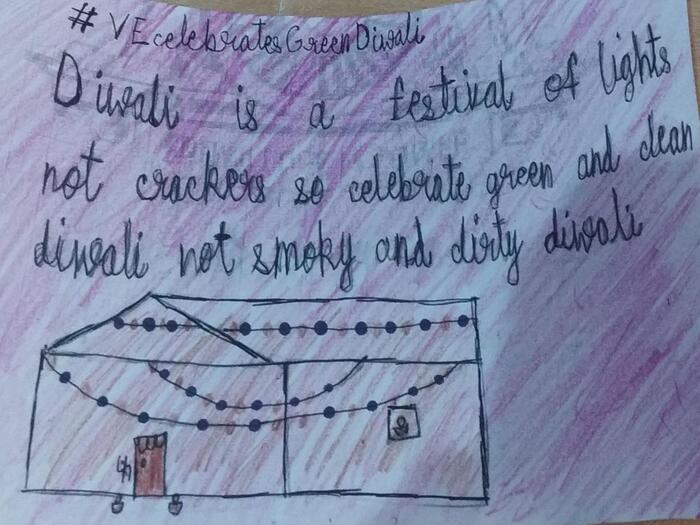 #VEcelebratesGreenDiwali
Diwali is a festival of lights
not crackers so celebrate green and clean
diwali not smoky and dirty diwali